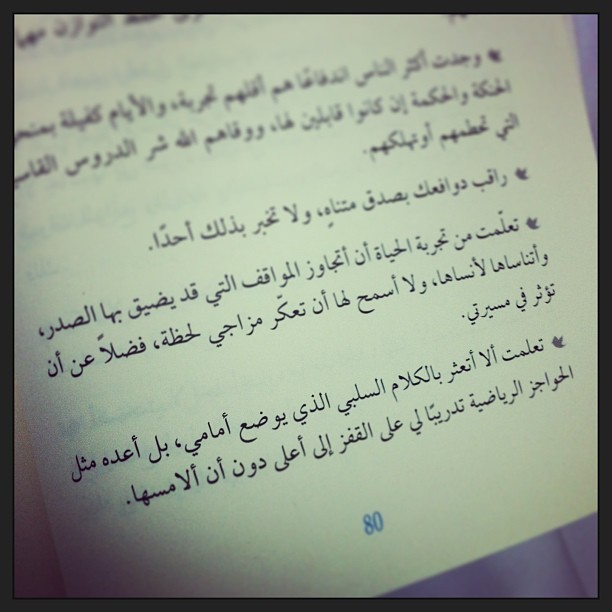 التوازن مهما
وجدت أكثر الناس اندفاعًا هم أقلهم تجربة، والأيام كفيلة بمنحهم
الحنكة والحكمة إن كانوا قابلين لها، ووقاهم الله شر الدروس القاسية
التي تحطمهم أو تهلكهم.
راقب دوافعك بصدق متناهٍ، ولا تخبر بذلك أحدًا.
تعلّمت من تجربة الحياة أن أتجاوز المواقف التي قد يضيق بها الصدر،
وأتناساها لأنساها، ولا أسمح لها أن تعكّر مزاجي لحظة، فضلاً عن أن
تؤثر في مسيرتي.
تعلمت ألا أتعثر بالكلام السلبي الذي يوضع أمامي، بل أعده مثل
الحواجز الرياضية تدريبًا لي على القفز إلى أعلى دون أن ألامسها.
80